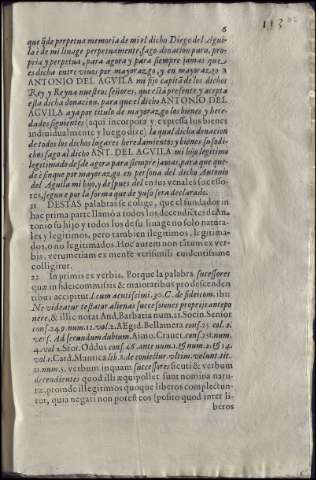 6
113
que q̃de perpetua memoria de mi el dicho Diego del Agui
la e de mi linage perpetuamente, fago donacion pura, pro
pria y perpetua, para agora y para siempre jamas que
es dicha entre viuos por mayorazgo, y en mayorazgo a
ANTONIO DEL AGVILA mi fijo capitã de los dichos
Rey y Reyna nuestros señores, que está presente, y acepta
esta dicha donacion, para que el dicho ANTONIO DEL
AGVILA aya por titulo de mayorazgo los bienes y here-
dades siguientes (aqui incorpora y espressa los bienes
indiuidualmente y luego dize) la qual dicha donacion
de todos los dichos logares heredamientos y bienes susodi-
chos fago al dicho ANT. DEL AGVILA mi hijo legitimo
legitimado desde agora para siempre jamas, para que que-
de e finque por mayorazgo en persona del dicho Antonio
del Aguila mi hijo, y despues del en sus ↄuales successo-
res, segun e por la forma que de yuso sera declarado.
21 DESTAS palabras se colige, que el fundador in
hac prima parte llamò a todos los decendiẽtes de An
tonio su hijo y todos los de su linage no solo natura-
les y legitimos, pero tambien ilegitimos, legitima-
dos, o no legitimados. Hoc autem non tãtum ex ver-
bis, verumetiam ex mente verisimili euidentissime
colligitur.
22 In primis ex verbis. Porque la palabra successores
quæ in fideicommissis & maioratibus pro descenden
tibus accipitur. l. cum acutissimi. 30. C. de fideicom. ibi:
Ne videatur testator alienas successiones proprijs antepo
nere, & illic notat And. Barbatia num. 11. Socin. Senior
cons. 249. num. 12. vol. 2. Ægid. Bellamera cons. 25. col. 2.
vers. Ad secundum dubium. Aimo. Crauet. cons. 251. num.
4. vol. 2. Sfor. Oddus cons. 46. ante num. 15. & num. 20. 14.
vol. 1. Card. Mantica lib. 2. de coniectur. vltim. volunt. tit.
11. num. 5. verbum inquam successores sicuti & verbum
descendientes quod illi æquipollet sunt nomina natu-
ræ, proinde illegitimos quoque liberos complectun-
tur, quia negari non potest eos (posito quod inter li
beros